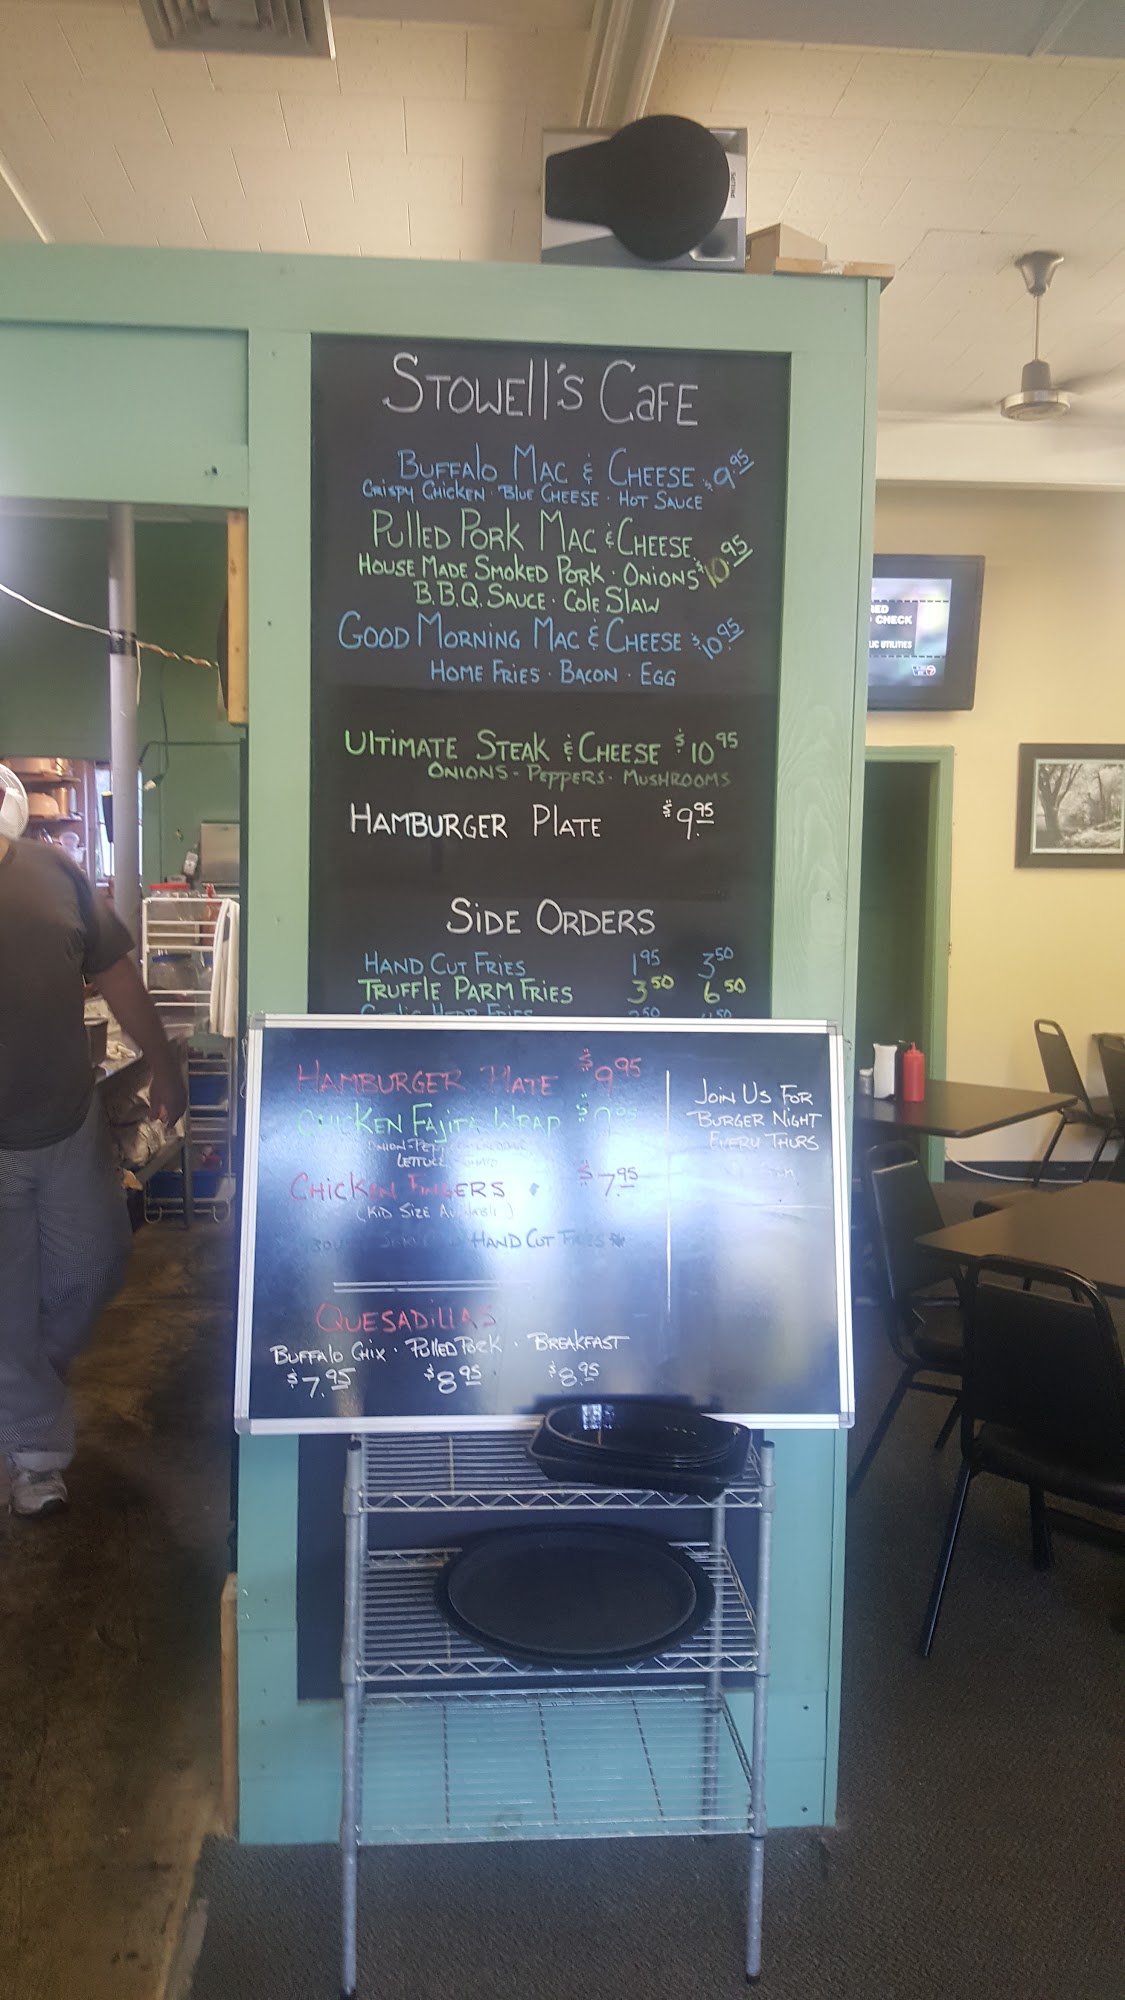 PHILIPS
STOWEll'S CaFE
BUFFAlO MAC & CHEESE $9.95
CRISPY CHICKEN · BLUE CHEESE · HOT SAUCE
PUllED PORK MAC & CHEESE
HOUSE MADE SMOKED PORK · ONIONS $10.95
B.B.Q. SAUCE · COLE SLAW
GOOD MORNING MAC & CHEESE $10.95
HOME FRIES · BACON · EGG
UlTIMATE STEAK & CHEESE $10 95
ONIONS - PEPPERS · MUSHROOMS
HAMBURGER PlATE $9.95
SiDE ORDERS
HAND CUT FRIES 1 95 3 50
TRUFFLE PARM FRIES 3 50 6 50
HERB FRIES
HAMBURGER PLATE $9 95
CHICKEN FAJITA WRAP
LETTUCE
CHICKEN FINGERS $7 95
(KID SIZE AVAILABLE)
HAND CUT FRIES
QUESADillAS
BUFFAlO CHIX · PUllED PORK · BREAKFAST
$7.95 $8.95 $8.95
JOIN US FOR
BURGER NIGHT
EVERY THURS
CHECK
LIC UTILITIES